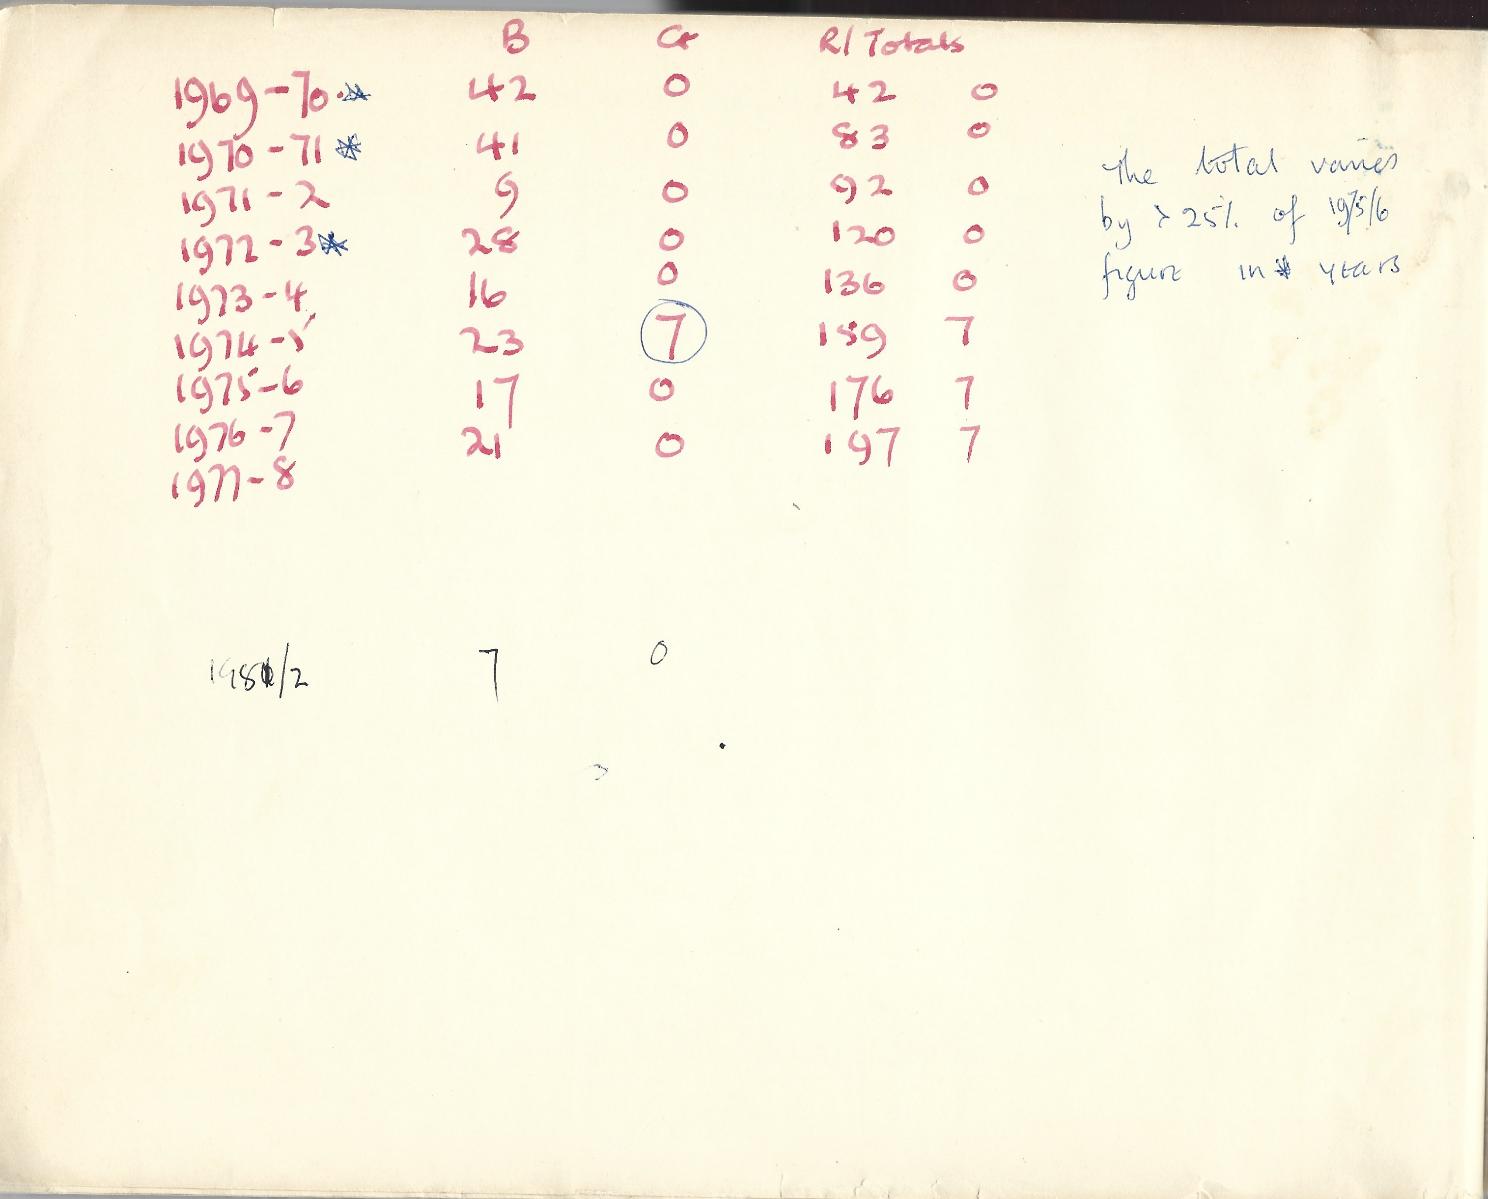 B Cr R/Totals
1969-70 * 42 0 42 0
1970-71 * 41 0 83 0
1971-2 9 0 92 0
1972-3 * 28 0 120 0
1973-4 16 0 136 0
1974-5 23 7 159 7
1975-6 17 0 176 7
1976-7 21 0 197 7
1977-8
The total varies
by > 25% of 1975/6
figure in * years
1981/2 7 0